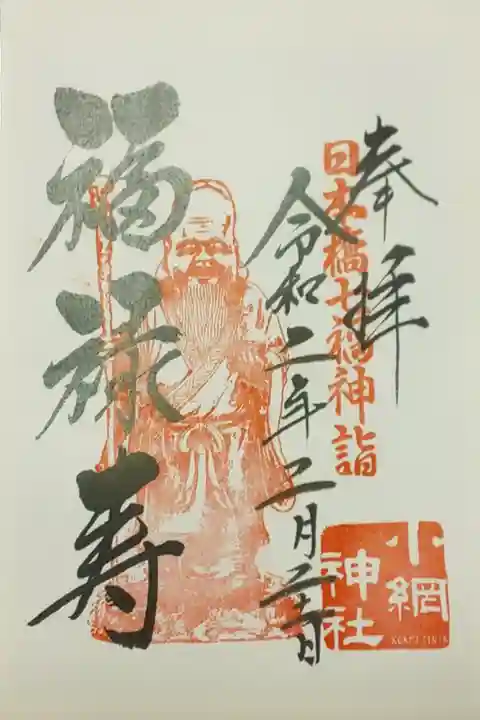 奉拝
日本橋七福神詣
令和二年二月二日
福禄寿
小網
神社
KOAMI JINJA